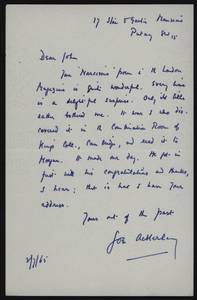 17 Star & Garter Mansions
Putney SW15
Dear John
Your Narcissus poem in the London
Magazine is quite wonderful. Every line
is a delightful surprise. Only its title
bothered me. It was I who dis-
covered it in the Combination Room of
King's Coll., Cambridge, and read it to
Morgan. It made our day. He joins in
just with his congratulations and thanks,
I hear; that is how I have your
address.
Yours out of the past
Joe Ackerley
2/7/65